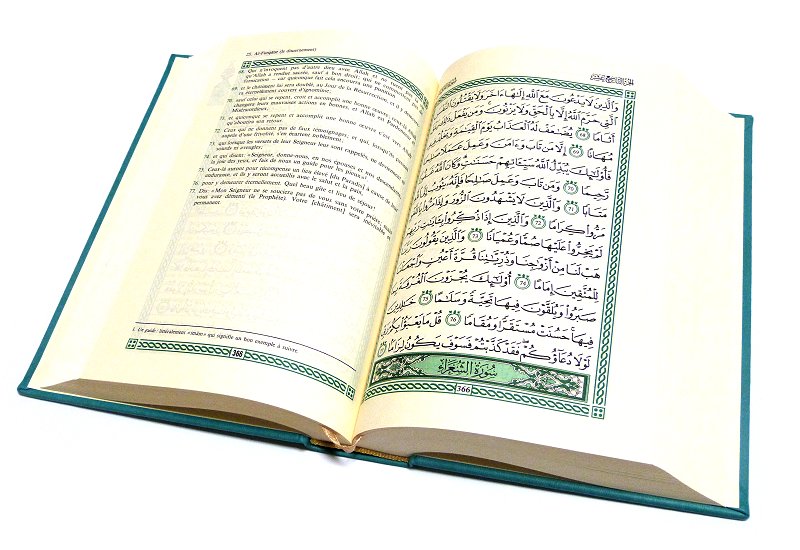 25. Al-Furqâne (le discernement)
68. Qui n'invoquent pas d'autre dieu avec Allah et ne tuent pas
qu'Allah a rendue sacrée, sauf à bon droit; qui ne
fornication — car quiconque fait cela encourra une punition
69. et le châtiment lui sera doublé, au Jour de la Résurrection, et il y
éternellement couvert d'ignominie;
70. sauf celui qui se repent, croit et accomplit une bonne œuvre; ceux-là
changera leurs mauvaises actions en bonnes, et Allah est Pardonneur
Miséricordieux;
71. et quiconque se repent et accomplit une bonne œuvre c'est vers Allah
qu'aboutira son retour.
72. Ceux qui ne donnent pas de faux témoignages; et qui, lorsqu'ils
auprès d'une frivolité, s'en écartent noblement;
73. qui lorsque les versets de leur Seigneur leur sont rappelés, ne deviennent
sourds ni aveugles;
74. et qui disent: «Seigneur, donne-nous, en nos épouses et nos descendants
la joie des yeux, et fais de nous un guide pour les pieux».
75. Ceux-là auront pour récompense un lieu élevé [du Paradis] à cause de leur
endurance, et ils y seront accueillis avec le salut et la paix,
76. pour y demeurer éternellement. Quel beau gîte et lieu de séjour!
77. Dis: «Mon Seigneur ne se souciera pas de vous sans votre prière; mais
vous avez démenti (le Prophète). Votre [châtiment] sera inévitable et
permanent.
1. Un guide: littéralement «imâm» qui signifie un bon exemple à suivre.
366
وَٱلَّذِينَ لَا يَدْعُونَ مَعَ ٱللَّهِ إِلَـٰهًا ءَاخَرَ وَلَا يَقْتُلُونَ
ٱلَّتِى حَرَّمَ ٱللَّهُ إِلَّا بِٱلْحَقِّ وَلَا يَزْنُونَ ۚ وَمَن يَفْعَلْ
أَثَامًا ٦٨ يُضَـٰعَفْ لَهُ ٱلْعَذَابُ يَوْمَ ٱلْقِيَـٰمَةِ
مُهَانًا ٦٩ إِلَّا مَن تَابَ وَءَامَنَ وَعَمِلَ عَمَلًا
فَأُو۟لَـٰٓئِكَ يُبَدِّلُ ٱللَّهُ سَيِّـَٔاتِهِمْ حَسَنَـٰتٍ ۗ وَكَانَ ٱللَّهُ
رَّحِيمًا ٧٠ وَمَن تَابَ وَعَمِلَ صَـٰلِحًا فَإِنَّهُۥ يَتُوبُ
مَتَابًا ٧١ وَٱلَّذِينَ لَا يَشْهَدُونَ ٱلزُّورَ وَإِذَا مَرُّوا۟
مَرُّوا۟ كِرَامًا ٧٢ وَٱلَّذِينَ إِذَا ذُكِّرُوا۟ بِـَٔايَـٰتِ
لَمْ يَخِرُّوا۟ عَلَيْهَا صُمًّا وَعُمْيَانًا ٧٣ وَٱلَّذِينَ يَقُولُونَ
هَبْ لَنَا مِنْ أَزْوَٰجِنَا وَذُرِّيَّـٰتِنَا قُرَّةَ أَعْيُنٍ وَٱجْعَلْنَا
لِلْمُتَّقِينَ إِمَامًا ٧٤ أُو۟لَـٰٓئِكَ يُجْزَوْنَ ٱلْغُرْفَةَ
صَبَرُوا۟ وَيُلَقَّوْنَ فِيهَا تَحِيَّةً وَسَلَـٰمًا ٧٥ خَـٰلِدِينَ
فِيهَا ۚ حَسُنَتْ مُسْتَقَرًّا وَمُقَامًا ٧٦ قُلْ مَا يَعْبَؤُا۟ بِكُمْ
لَوْلَا دُعَآؤُكُمْ ۖ فَقَدْ كَذَّبْتُمْ فَسَوْفَ يَكُونُ لِزَامًا ٧٧
سُورَةُ ٱلشُّعَرَاءِ
366